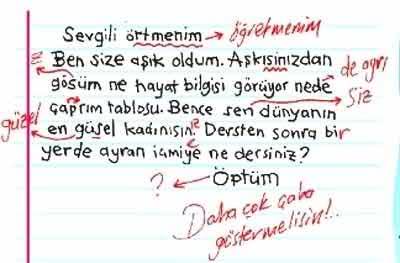 Sevgili örtmenim → öğretmenim
z Ben size aşık oldum. Aşkısinızdan
gösüm ne hayat bilgisi görüyor nede de ayrı
çaprım tablosu. Bence sen dünyanın Siz
güzel en güsel kadınısın. Dersten sonra bir
yerde ayran içmiye ne dersiniz?
? ← Öptüm
Daha çok çaba
göstermelisin!..